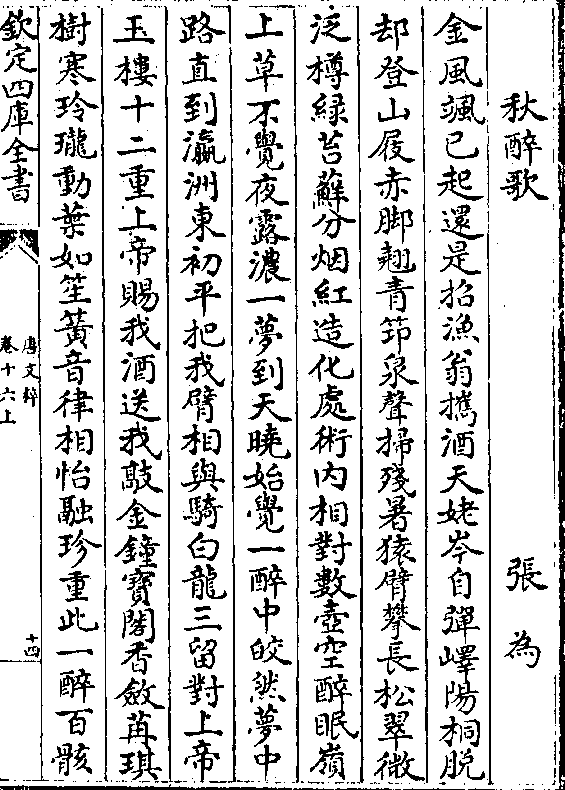 秋醉歌　張為
金風颯已起還是招漁翁攜酒天姥岑自彈嶧陽桐脫
却登山屐赤脚翹青笻泉聲掃殘暑猿臂攀長松翠微
泛樽綠苔蘚分烟紅造化處術內相對數壺空醉眠嶺
上草不覺夜露濃一夢到天曉始覺一醉中皎然夢中
路直到瀛洲東初平把我臂相與騎白龍三留對上帝
玉樓十二重上帝賜我酒送我敲金鐘寶閣香斂苒琪
樹寒玲瓏動葉如笙簧音律相怡融珍重此一醉百骸
欽定四庫全書
唐文粹
卷十六上
十四